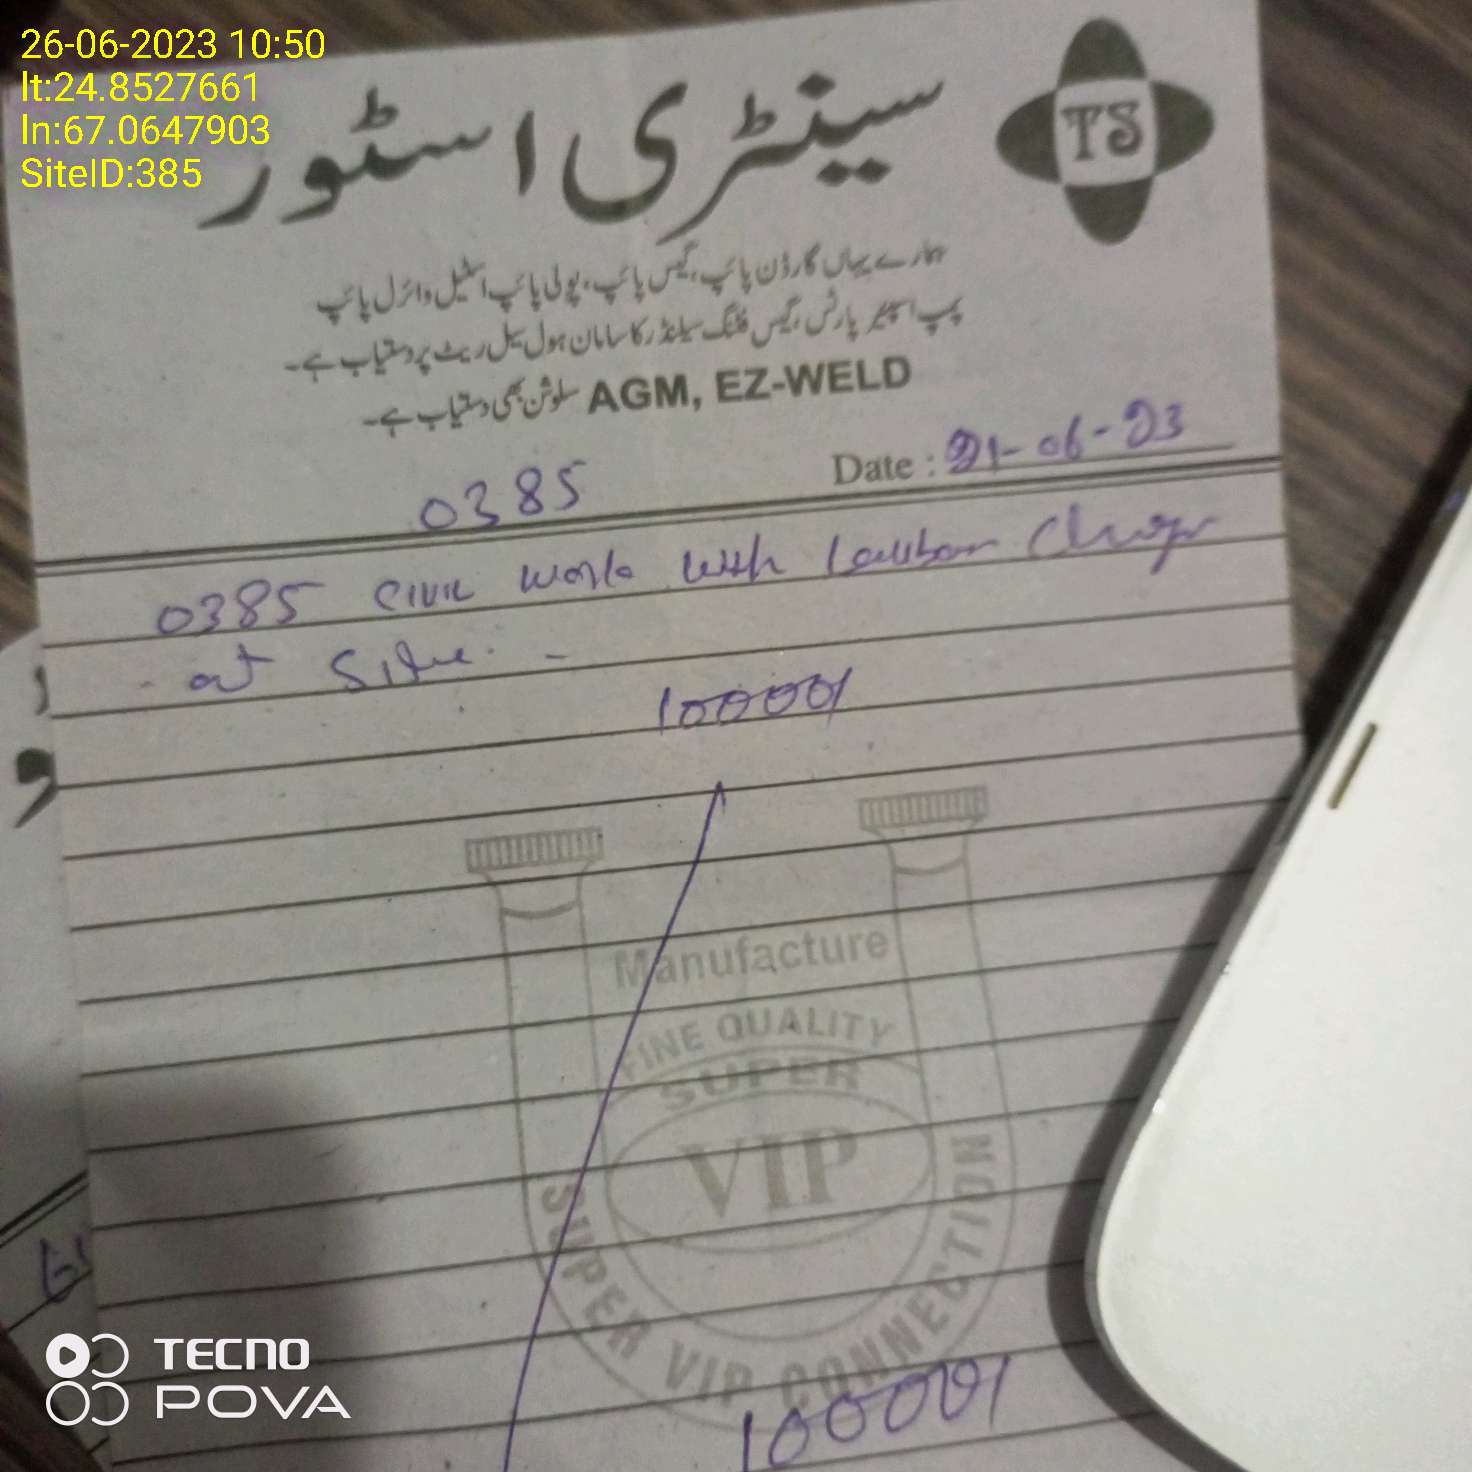 26-06-2023 10:50
lt:24.8527661
ln:67.0647903
SiteID:385
سینٹری اسٹور
TS
ہمارے یہاں گارڈن پائپ، گیس پائپ، پولی پائپ اسٹیل وائرل پائپ
پمپ اسپیئر پارٹس، گیس فٹنگ سیلنڈر کا سامان ہول سیل ریٹ پر دستیاب ہے۔
AGM, EZ-WELD سلوشن بھی دستیاب ہے۔
Date : 21-06-23
0385
0385 civil work with
at Site.
10000/
Manufacture
FINE QUALITY
SUPER
VIP
SUPER VIP CONNECTION
10000/
TECNO
POVA